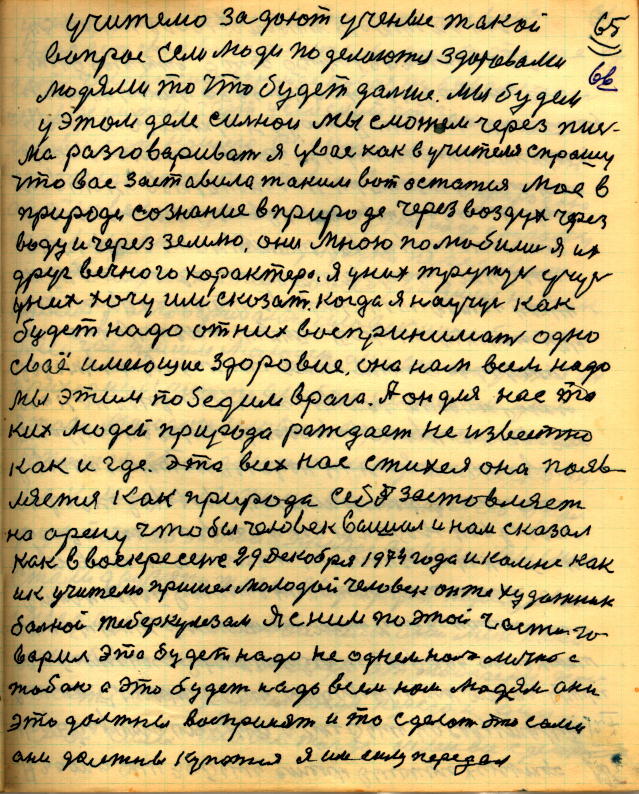 учителю задают ученые такой 65
вопрос если люди поделаются здоровами 66
людями то что будет дальше. мы будем
у этом деле сильнои мы сможем через пис-
ма разговариват я увас как в учителя спрашу
что вас заставила таким вот остатся мое в
природи сознание в природе через воздух через
воду и через землю, они мною полюбили я их
друг вечного характера. я уних тружус учус
уних хочу им сказат. когда я научус как
будет надо от них воспринимат одно
сваё имеющие здоровие, она нам всем надо
мы этим победим врага. А он для нас та
ких людей природа раждает не известно
как и где. эта всех нас стихея она появ-
ляется как природа себя заставляет
на арену чтобы человек вышил и нам сказал
как в воскресене 29 декобря 1974 года и камне как
ик учителю пришел молодый человек онже художник
балной теберкулезам я с ним по этой части го
варил это будет надо не однем нам лично с
тобаю а это будет надо всем нам людям ани
это должны воспринят и то сделат это сами
они должны купатся я им силу передал